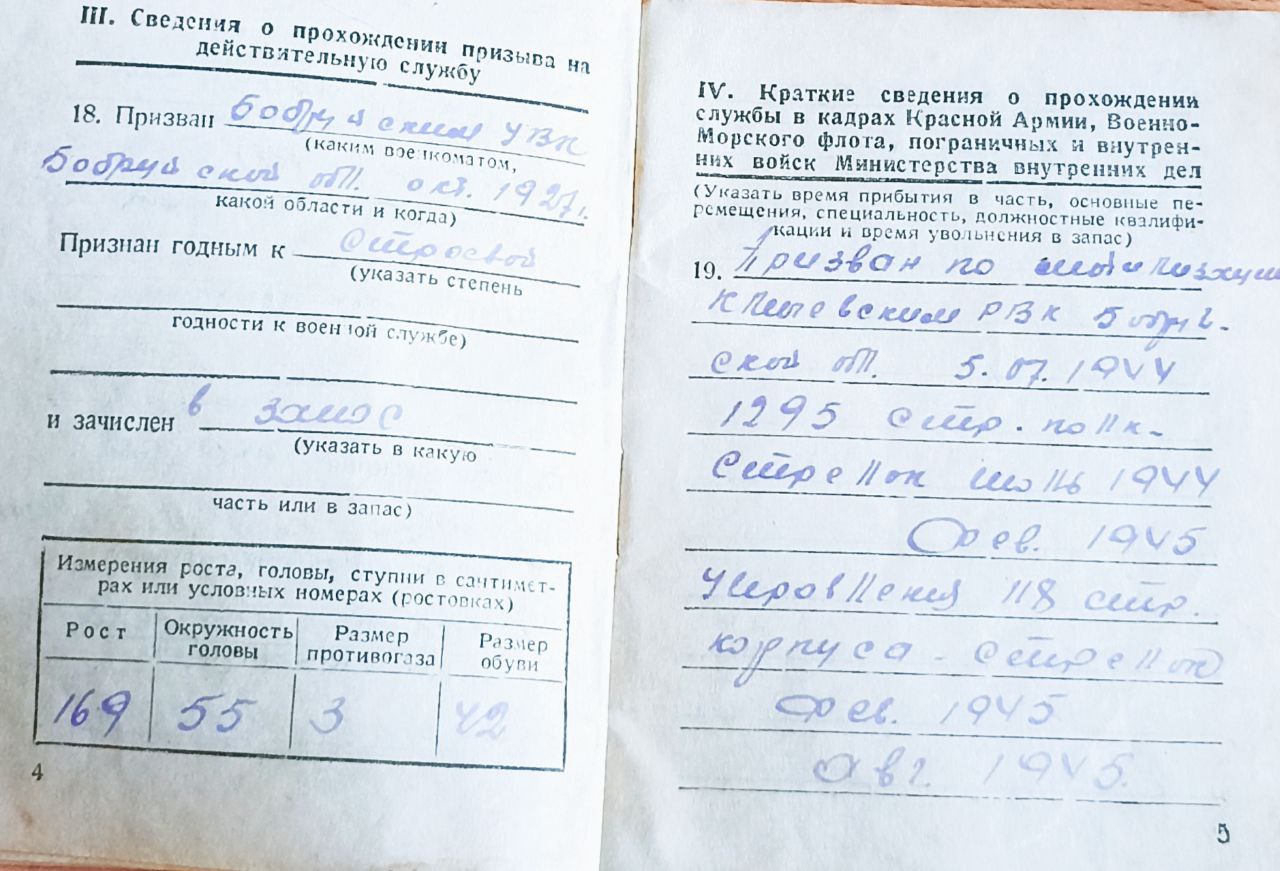 III. Сведения о прохождении призыва на
действительную службу
18. Призван Бобруйским УВК
(каким военкоматом,
Бобруйской обл. окт. 1927г.
какой области и когда)
Признан годным к строевой
(указать степень
годности к военной службе)
и зачислен в запас
(указать в какую
часть или в запас)
Измерения роста, головы, ступни в сантимет-
рах или условных номерах (ростовках)
Рост Окружность головы Размер противогаза Размер обуви
169 55 3 42
4
IV. Краткие сведения о прохождении
службы в кадрах Красной Армии, Военно-
Морского флота, пограничных и внутрен-
них войск Министерства внутренних дел
(Указать время прибытия в часть, основные пе-
ремещения, специальность, должностные квалифи-
кации и время увольнения в запас)
19. Призван по мобилизации
Кличевским РВК Бобруй-
ской обл. 5.07.1944
1295 стр. полк -
стрелок июль 1944
Фев. 1945
Управления 118 стр.
корпуса - стрелок
Фев. 1945
Авг. 1945.
5